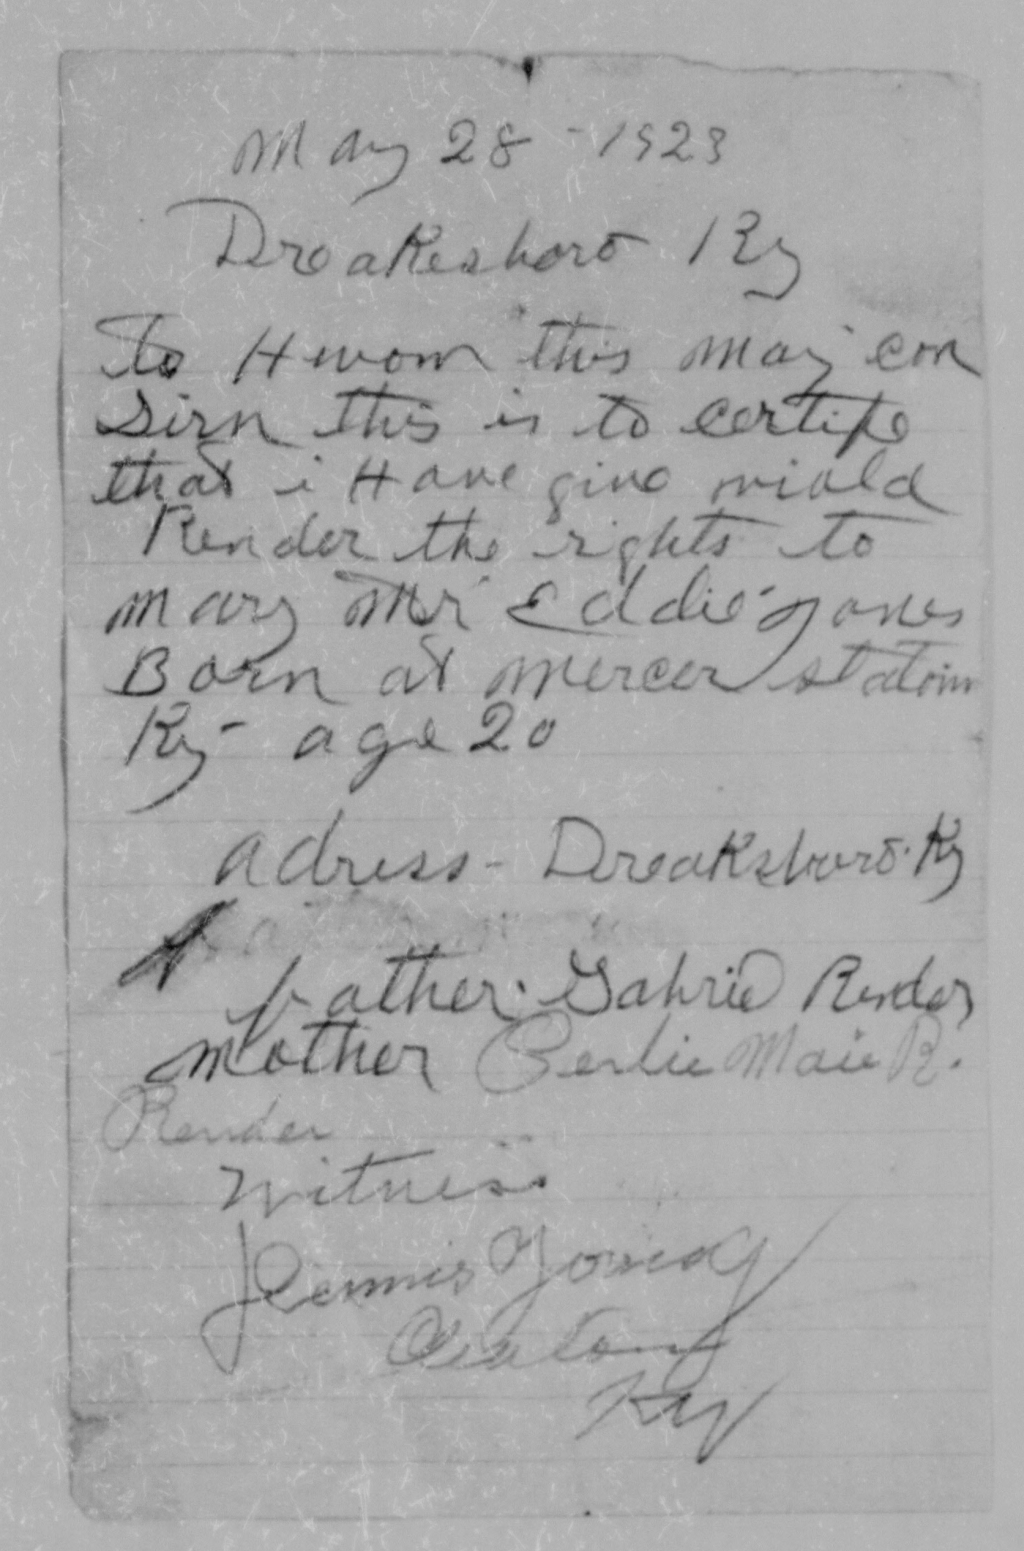 May 28 - 1923
Dreakesboro Ky
To Hwom this may con
Sirn this is to certife
that i Have give
Render the rights to
mary Mr Eddie Jones
Born at mercer station
Ky - age 20
adress - Dreaksboro. Ky
father. Gabriel Render
mother Perlie Maie R.
Render
Witness
Dennis Young
Ky